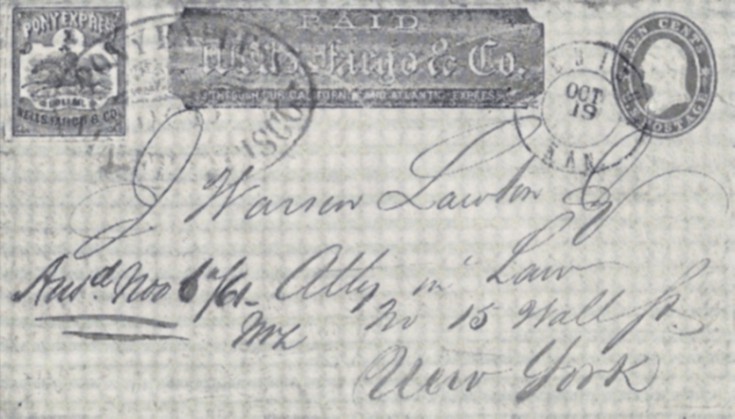 PONY EXPRESS
WELLS, FARGO & CO.
PAID
Wells, Fargo & Co.
THROUGH OUR CALIFORNIA AND ATLANTIC EXPRESS
OCT
19
KAN
TEN CENTS
U.S. POSTAGE
J Warren Lawton Esq
Ansd. Nov 6th/61 Atty in Law
No 15 Wall St.
New York